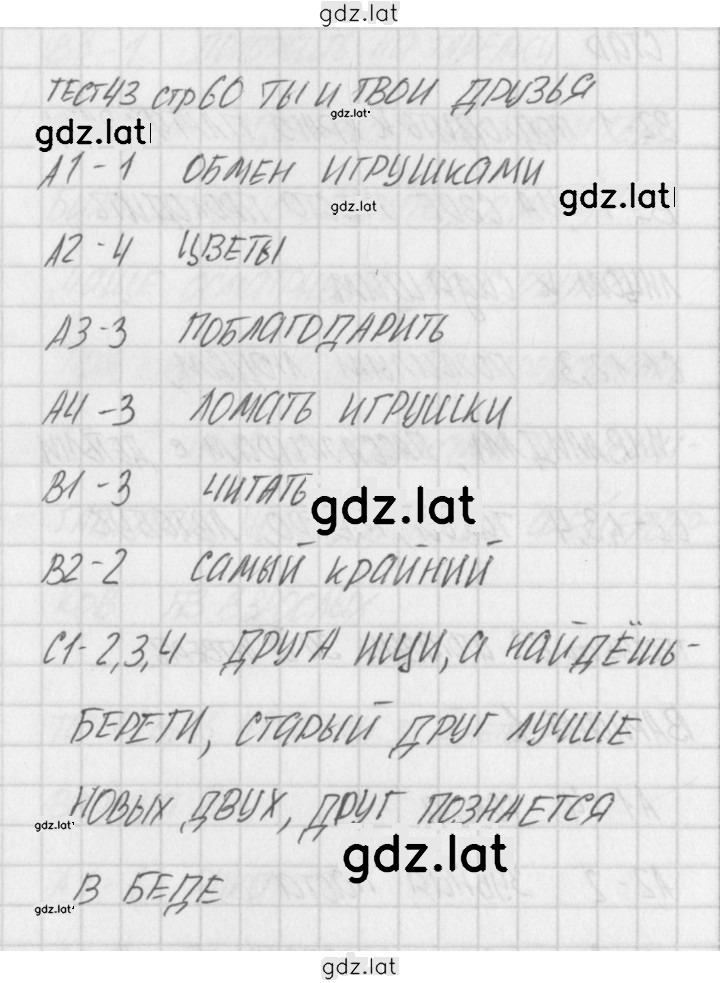 gdz.lat
ТЕСТ 43 стр 60 ТЫ И ТВОИ ДРУЗЬЯ
gdz.lat
gdz.lat
А1 - 1 ОБМЕН ИГРУШКАМИ
gdz.lat
gdz.lat
А2 - 4 ЦВЕТЫ
А3 - 3 ПОБЛАГОДАРИТЬ
А4 - 3 ЛОМАТЬ ИГРУШКИ
В1 - 3 ЧИТАТЬ
gdz.lat
В2 - 2 САМЫЙ КРАЙНИЙ
С1 - 2,3,4 ДРУГА ИЩИ, а НАЙДЁШЬ -
БЕРЕГИ, СТАРЫЙ ДРУГ ЛУЧШЕ
НОВЫХ ДВУХ, ДРУГ ПОЗНАЕТСЯ
gdz.lat
gdz.lat
В БЕДЕ
gdz.lat
gdz.lat